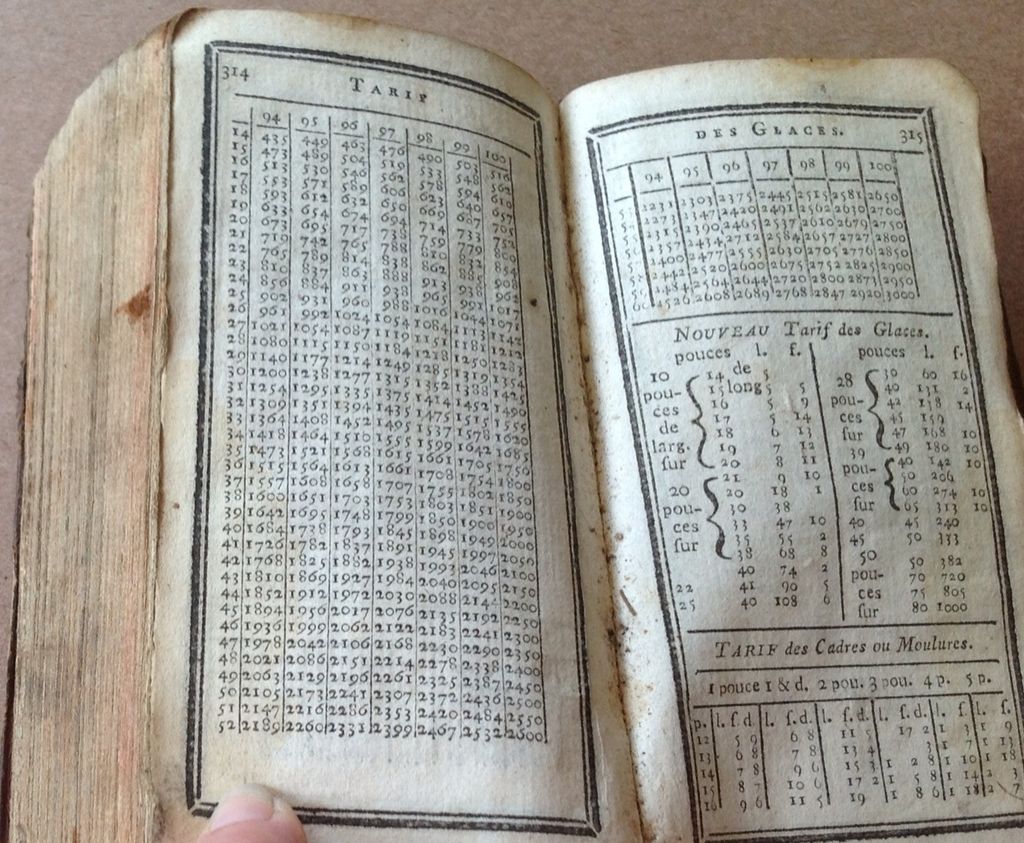 314 TARIF
94 95 96 97 98 99 100
14 435 449 463 476 490 503 516
15 473 489 504 519 533 548 562
16 513 530 546 562 578 594
17 553 571 589 606 623 640 657
18 593 612 632 650
19 633 654 674 694 714 733 752
20 673 695 717 738 759 779
21 719 742 765 788 810 832 854
22 765 789 814 838 862
23 810 837 863 888 913 938 962
24 856 884 911 938 965
25 902 931 960 988 1016 1044 1071
26 961 992 1024 1054 1084 1113 1142
27 1021 1054 1087 1119 1151 1181 1212
28 1080 1115 1150 1184 1218 1250
29 1140 1177 1214 1249 1285 1319 1354
30 1200 1238 1277 1315 1352 1388
31 1254 1295 1335 1375 1414 1452 1490
32 1309 1351 1394 1435 1475 1515
33 1364 1408 1452 1495 1537 1578 1620
34 1418 1464 1510 1555 1599 1642 1685
35 1473 1521 1568 1615 1661 1705 1750
36 1515 1564 1613 1661 1708 1754 1800
37 1557 1608 1658 1707 1755 1802 1850
38 1600 1651 1703 1753 1803 1851 1900
39 1642 1695 1748 1799 1850 1900 1950
40 1684 1738 1793 1845 1898 1949 2000
41 1726 1782 1837 1891 1945 1997 2050
42 1768 1825 1882 1938 1993 2046 2100
43 1810 1869 1927 1984 2040 2095 2150
44 1852 1912 1972 2030 2088 2144 2200
45 1894 1956 2017 2076 2135 2192 2250
46 1936 1999 2062 2122 2183 2241 2300
47 1978 2042 2106 2168 2230 2290 2350
48 2021 2086 2151 2214 2278 2338 2400
49 2063 2129 2196 2261 2325 2387 2450
50 2105 2173 2241 2307 2372 2436 2500
51 2147 2216 2286 2353 2420 2484 2550
52 2189 2260 2331 2399 2467 2532 2600
DES GLACES. 315
94 95 96 97 98 99 100
2231 2303 2375 2445 2515 2581 2650
2273 2347 2420 2491 2562 2630 2700
2315 2390 2465 2537 2610 2679 2750
2357 2434 2712 2584 2657 2727 2800
2400 2477 2555 2630 2705 2776 2850
2442 2520 2600 2675 2752 2825 2900
2484 2564 2644 2720 2800 2873 2950
60 2526 2608 2689 2768 2847 2920 3000
NOUVEAU Tarif des Glaces.
pouces l. f. pouces l. f.
10 pouces de larg. fur
14 de 5
15 long 5 5
16 5 9
17 5 14
18 6 13
19 7 12
20 8 11
21 9 10
20 pouces fur
20 18 1
30 38
33 47 10
35 55 2
38 68 8
40 74 2
22 41 90 5
25 40 108 6
28 pouces fur
30 60 16
40 131 2
42 138 14
45 159
47 168 10
49 180 10
39 pouces fur
40 142 10
50 206
60 274 10
65 313 10
40 45 240
45 50 333
50 pouces fur
50 382
70 720
75 805
80 1000
TARIF des Cadres ou Moulures.
1 pouce 1 & d. 2 pou. 3 pou. 4 p. 5 p.
p. l. f. d. l. f. d. l. f. d. l. f. d. l. f. l. f.
12 5 9 6 8 11 5 17 2 1 3 1 9
13 6 8 7 8 13 4
14 7 8 9 6 15 3 1 2 8 1 10 1 18
15 8 7 10 6 17 2 1 5 8 1 14 2 3
16 9 6 11 5 19 1 8 6 1 18 2 7